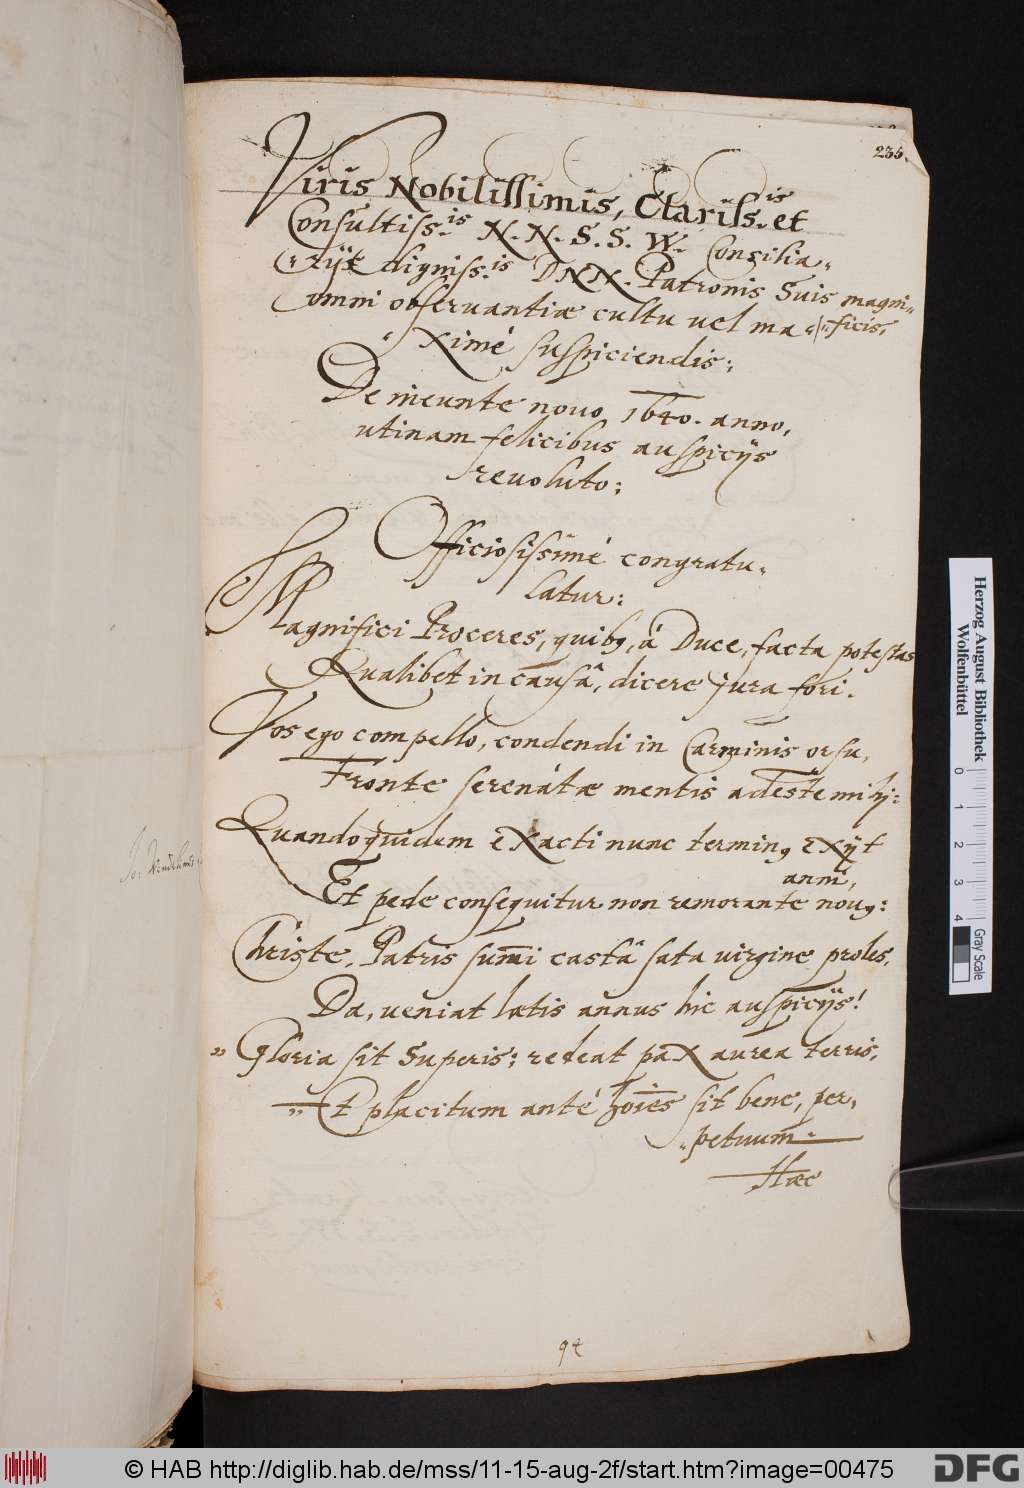 235.
Viris Nobilissimis, Clariss.is et
Consultiss.is N. N. S. S. W. Consilia„
„rijs digniss.is DNN. Patronis Suis magni„
omni observantiæ cultu vel ma„ „ficis,
„ximé suspiciendis:
De ineunte novo 1640. anno,
utinam felicibus auspicijs
revoluto:
Officiosissimé congratu„
latur:
Magnifici Proceres, quibq, á Duce, facta potestas
Qualibet in causâ, dicere jura fori.
Vos ego compello, condendi in Carminis orsu,
Fronte serenátæ mentis adeste mihi:
Quandoquidem eXacti nunc terminq eXijt
anni,
Et pede consequitur non remorante novq:
Christe, Patris summi castâ sata virgine proles,
Da, veniat lætis annus hic auspicijs!
„ Gloria sit Superis: redeat paX aurea terris,
„ Et placitum anté hoies sit bene, per„
„petuum.
Hæc
94
Herzog August Bibliothek
Wolfenbüttel
0 1 2 3 4
Gray Scale
© HAB http://diglib.hab.de/mss/11-15-aug-2f/start.htm?image=00475
DFG